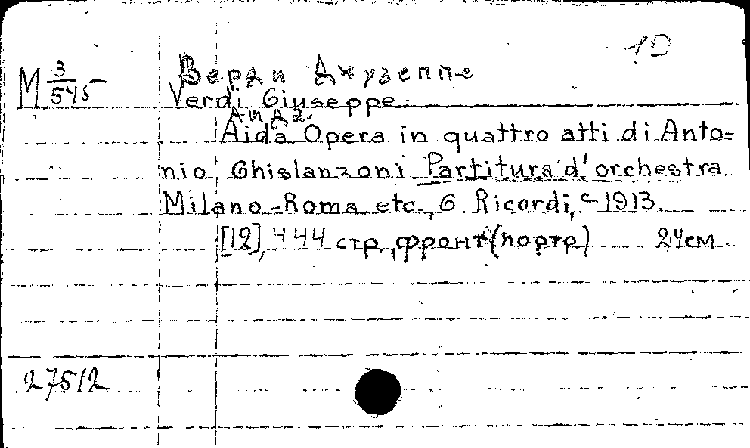 10
М 3/545
Верди Джузеппе
Verdi Giuseppe.
Аида.
Aida Opera in quattro atti di Anto=
nio Ghislanzoni Partitura d'orchestra
Milano-Roma etc., G. Ricordi, c 1913.
[12], 444 стр., фронт (портр) 24см
27512